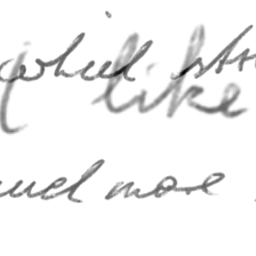 which
like
much more